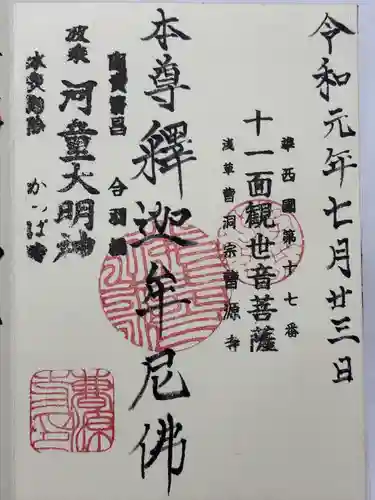 令和元年七月廿三日
準西國第十七番
十一面觀世音菩薩
浅草曹洞宗曹源寺
本尊釋迦牟尼佛
商賣繁昌 合羽橋
波乘 河童大明神
水災消除 かっぱ寺
曹源寺印